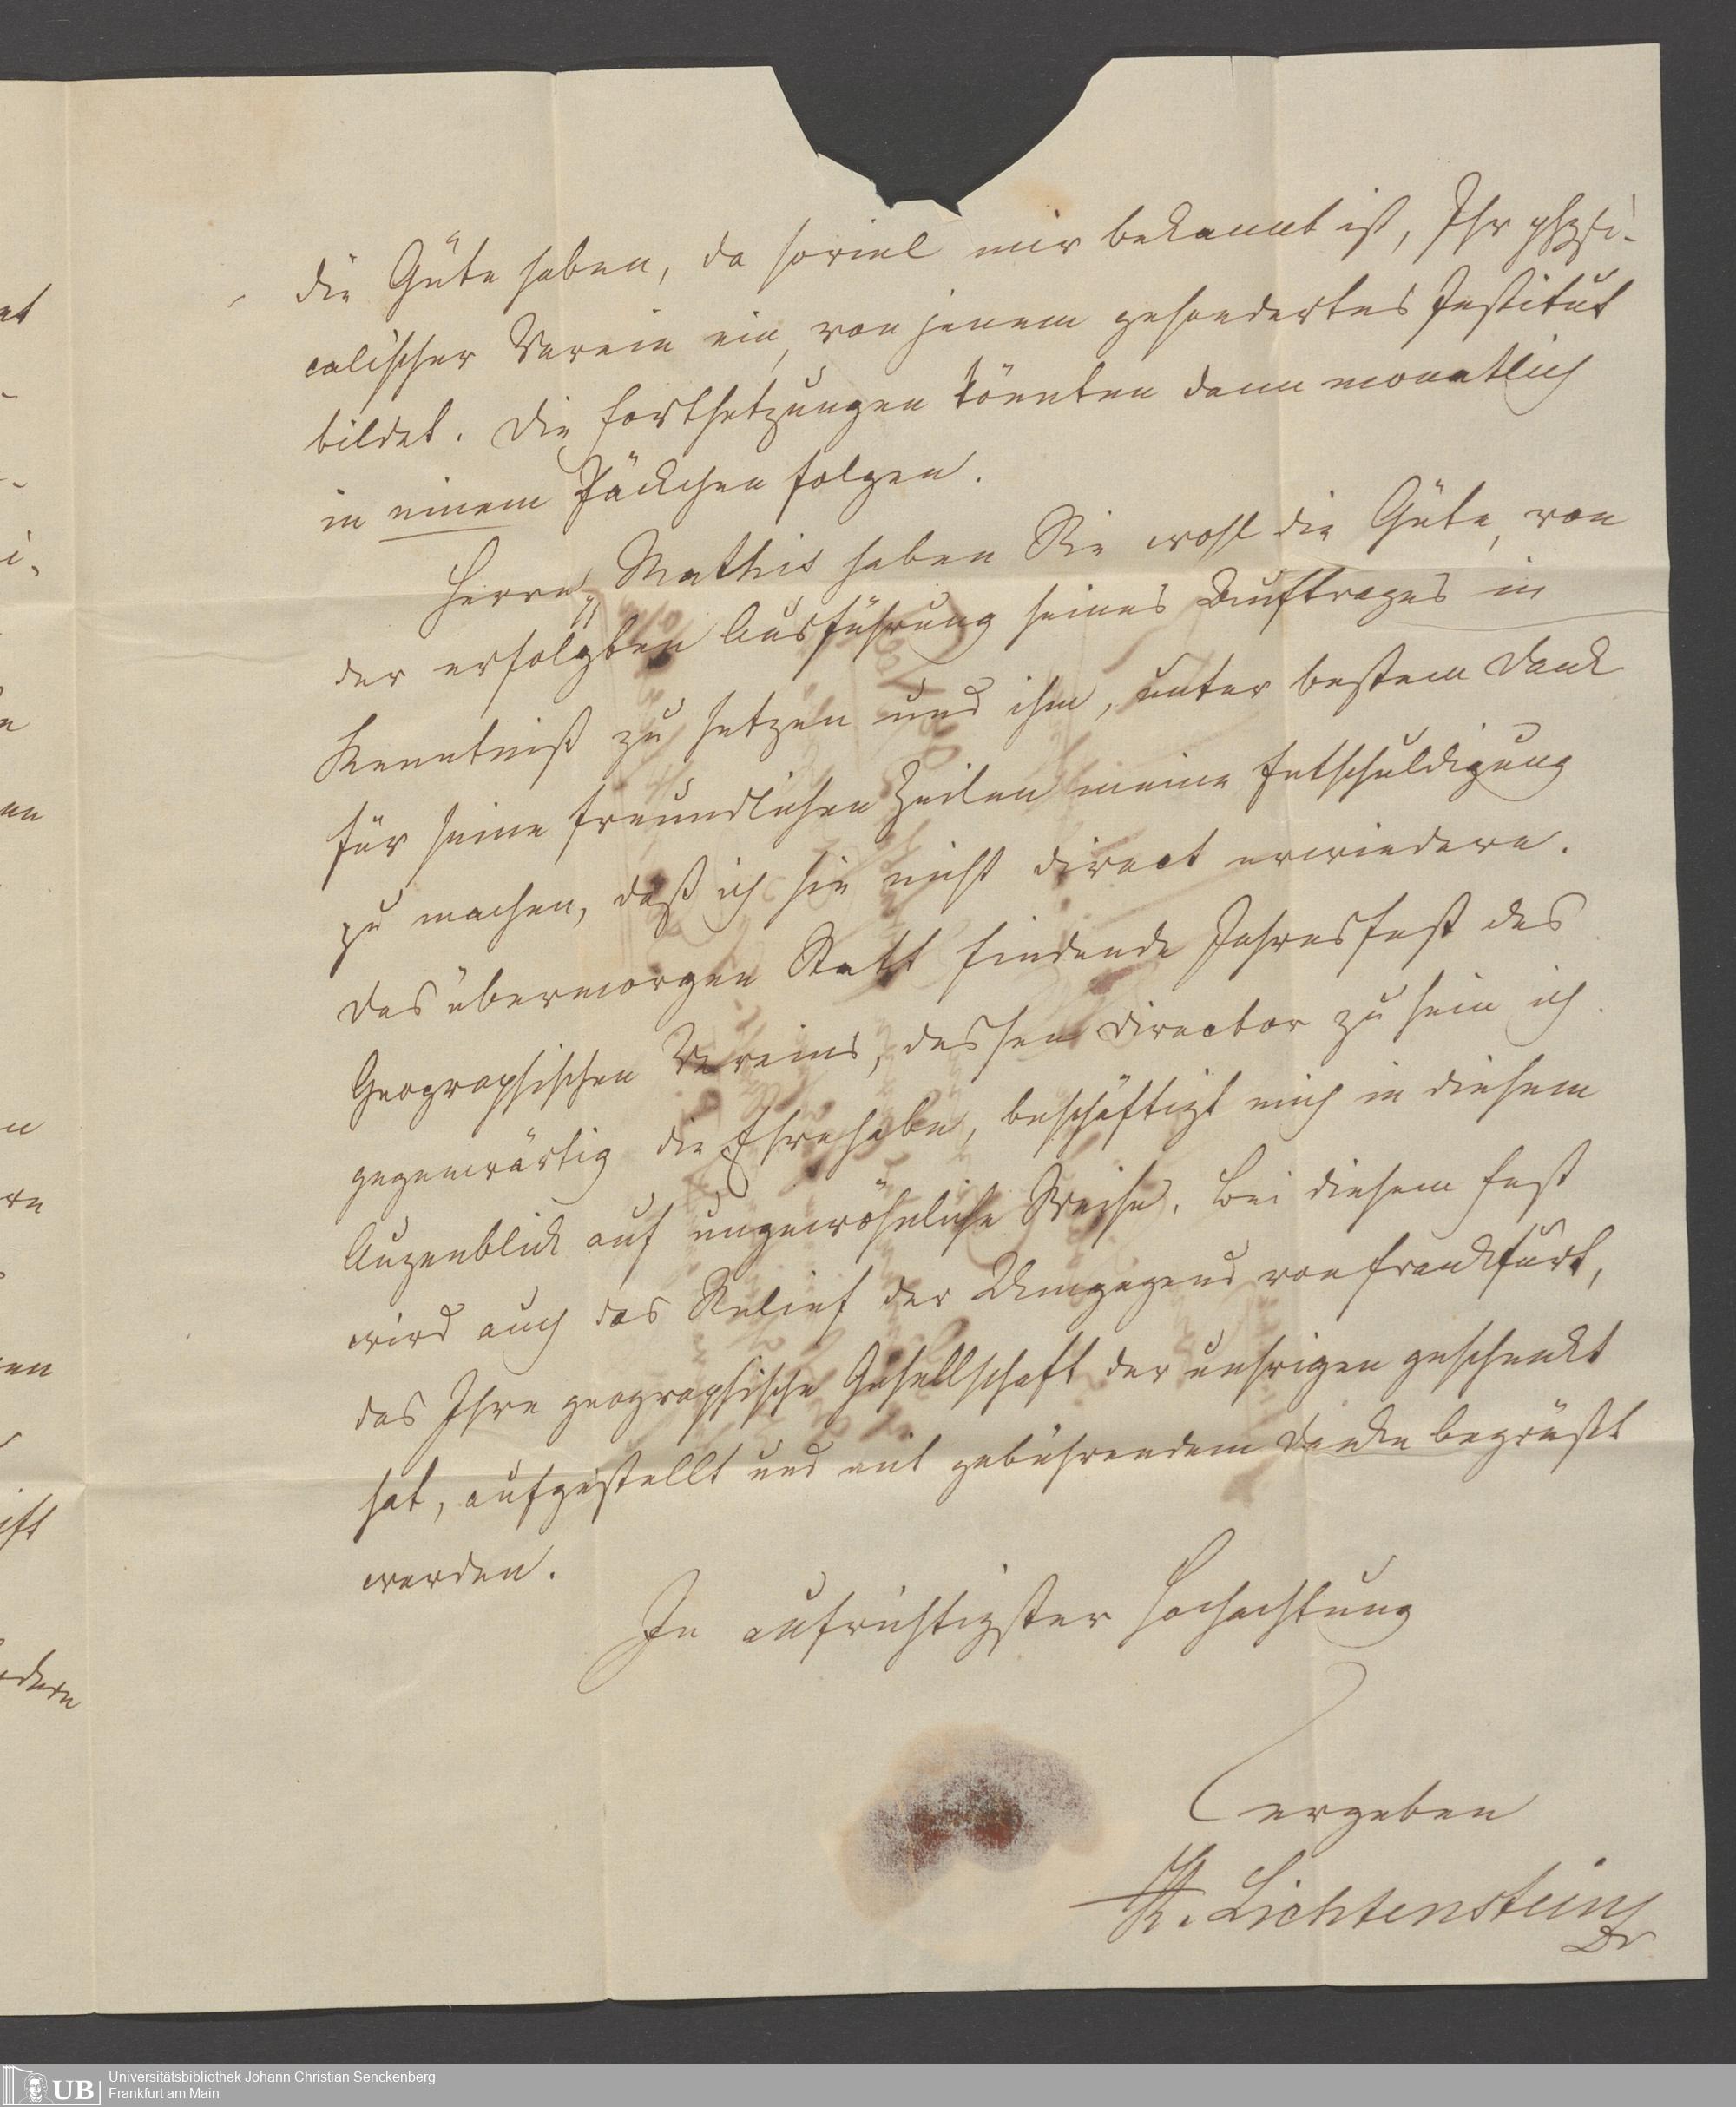 die Güte haben, da soviel mir bekannt ist, Ihr physi-
calischer Verein ein, von jenem gesondertes Institut
bildet. Die Fortsetzungen könnten dann monatlich
in einem Päckchen folgen.
Herrn Mathis haben Sie wohl die Güte, von
der erfolgten Ausführung seines Auftrages in
Kenntniß zu setzen und ihm, unter bestem Dank
für seine freundlichen Zeilen meine Entschuldigung
zu machen, daß ich sie nicht direct erwiedere.
Das übermorgen Statt findende Jahresfest des
Geographischen Vereins, dessen Director zu sein ich
gegenwärtig die Ehre habe, beschäftigt mich in diesem
Augenblick auf ungewöhnliche Weise. Bei diesem Fest
wird auch das Relief der Umgegend von Frankfurt,
das Ihre geographische Gesellschaft der unsrigen geschenkt
hat, aufgestellt und mit gebührendem Danke begrüßt
werden.
In aufrichtigster Hochachtung
ergeben
Lichtenstein
Dr
UB
Universitätsbibliothek Johann Christian Senckenberg
Frankfurt am Main